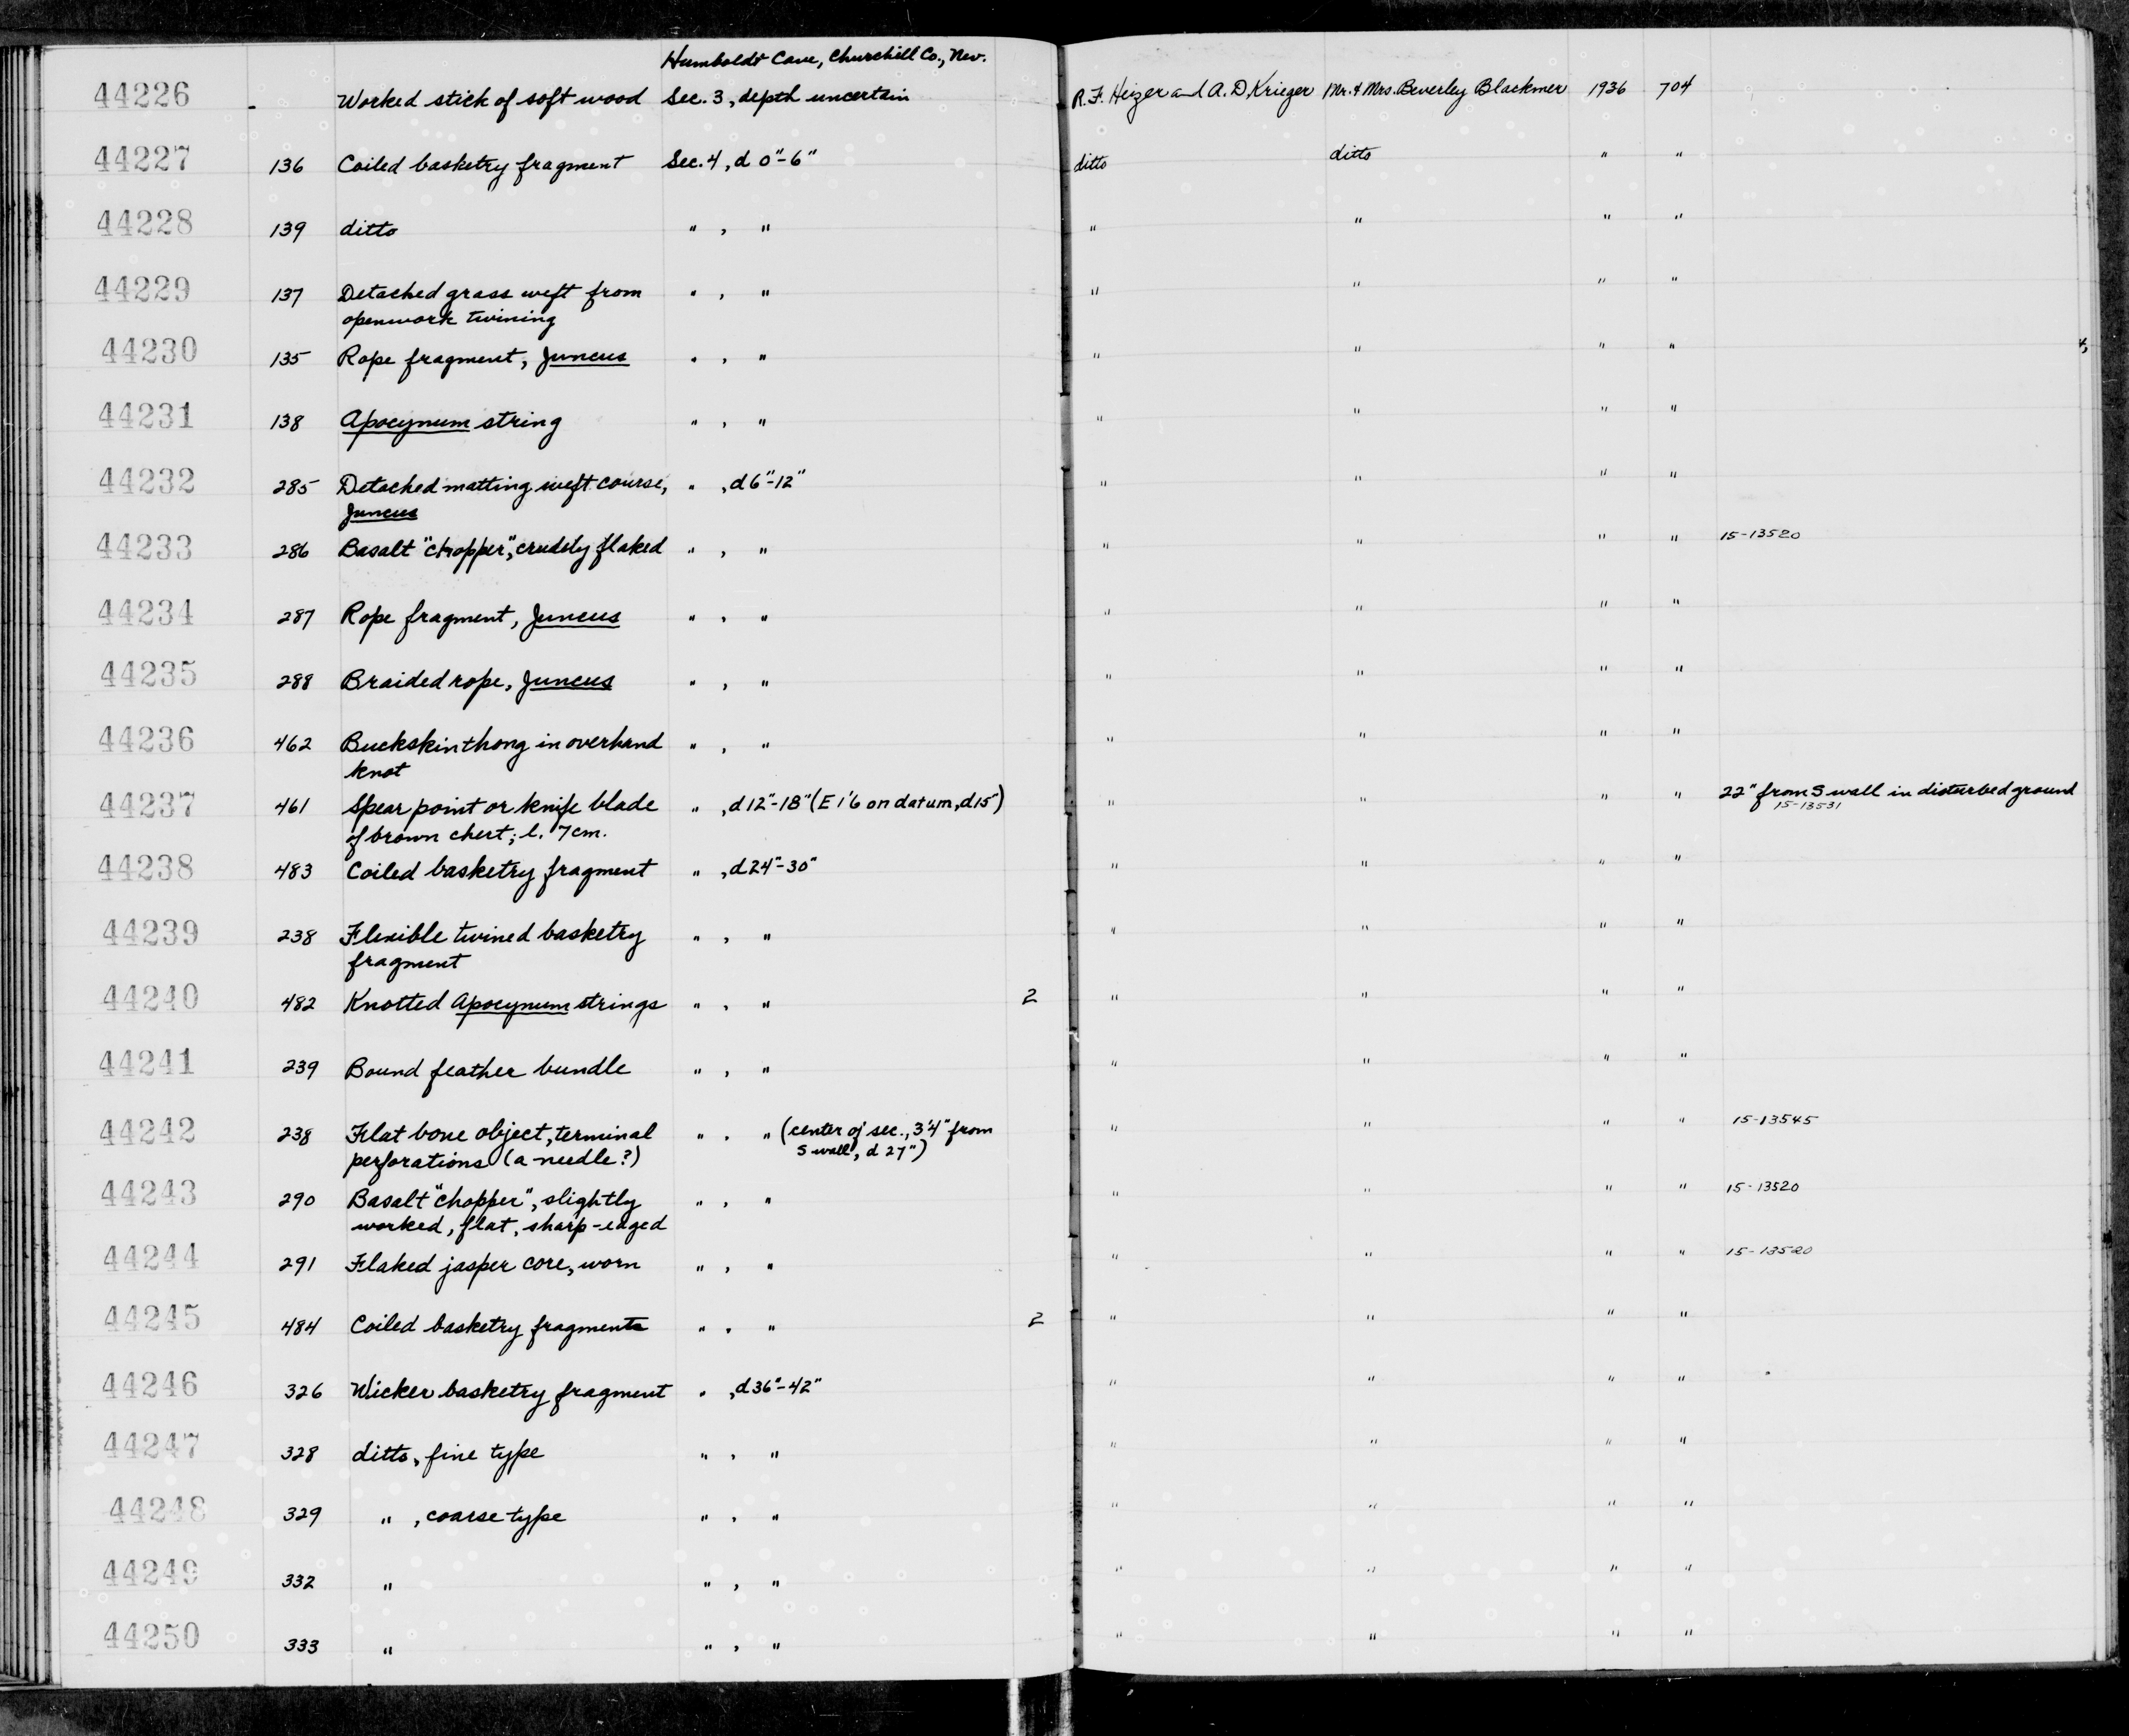 Humboldt Cave, Churchill Co., Nev.
44226 - Worked stick of soft wood Sec. 3, depth uncertain R. F. Heizer and A. D. Krieger Mr. & Mrs. Beverley Blackmer 1936 704
44227 136 Coiled basketry fragment Sec. 4, d 0"-6" ditto ditto " "
44228 139 ditto " , " " " " "
44229 137 Detached grass weft from " , " " " " "
openwork twining
44230 135 Rope fragment, Juncus " , " " " " "
44231 138 Apocynum string " , " " " " "
44232 285 Detached matting weft course, " , d 6"-12" " " " "
Juncus
44233 286 Basalt "chopper", crudely flaked " , " " " " " 15-13520
44234 287 Rope fragment, Juncus " , " " " " "
44235 288 Braided rope, Juncus " , " " " " "
44236 462 Buckskin thong in overhand " , " " " " "
knot
44237 461 Spear point or knife blade " , d 12"-18" (E 1'6 on datum, d 15") " " " " 22" from S wall in disturbed ground
of brown chert; l. 7 cm. 15-13531
44238 483 Coiled basketry fragment " , d 24"-30" " " " "
44239 238 Flexible twined basketry " , " " " " "
fragment
44240 482 Knotted Apocynum strings " , " 2 " " " "
44241 239 Bound feather bundle " , " " " " "
44242 238 Flat bone object, terminal " , " (center of sec., 3'4" from " " " " 15-13545
perforations (a needle?) S wall, d 27")
44243 290 Basalt "chopper", slightly " , " " " " " 15-13520
worked, flat, sharp-edged
44244 291 Flaked jasper core, worn " , " " " " " 15-13520
44245 484 Coiled basketry fragments " , " 2 " " " "
44246 326 Wicker basketry fragment " , d 36"-42" " " " "
44247 328 ditto, fine type " , " " " " "
44248 329 " , coarse type " , " " " " "
44249 332 " " , " " " " "
44250 333 " " , " " " " "